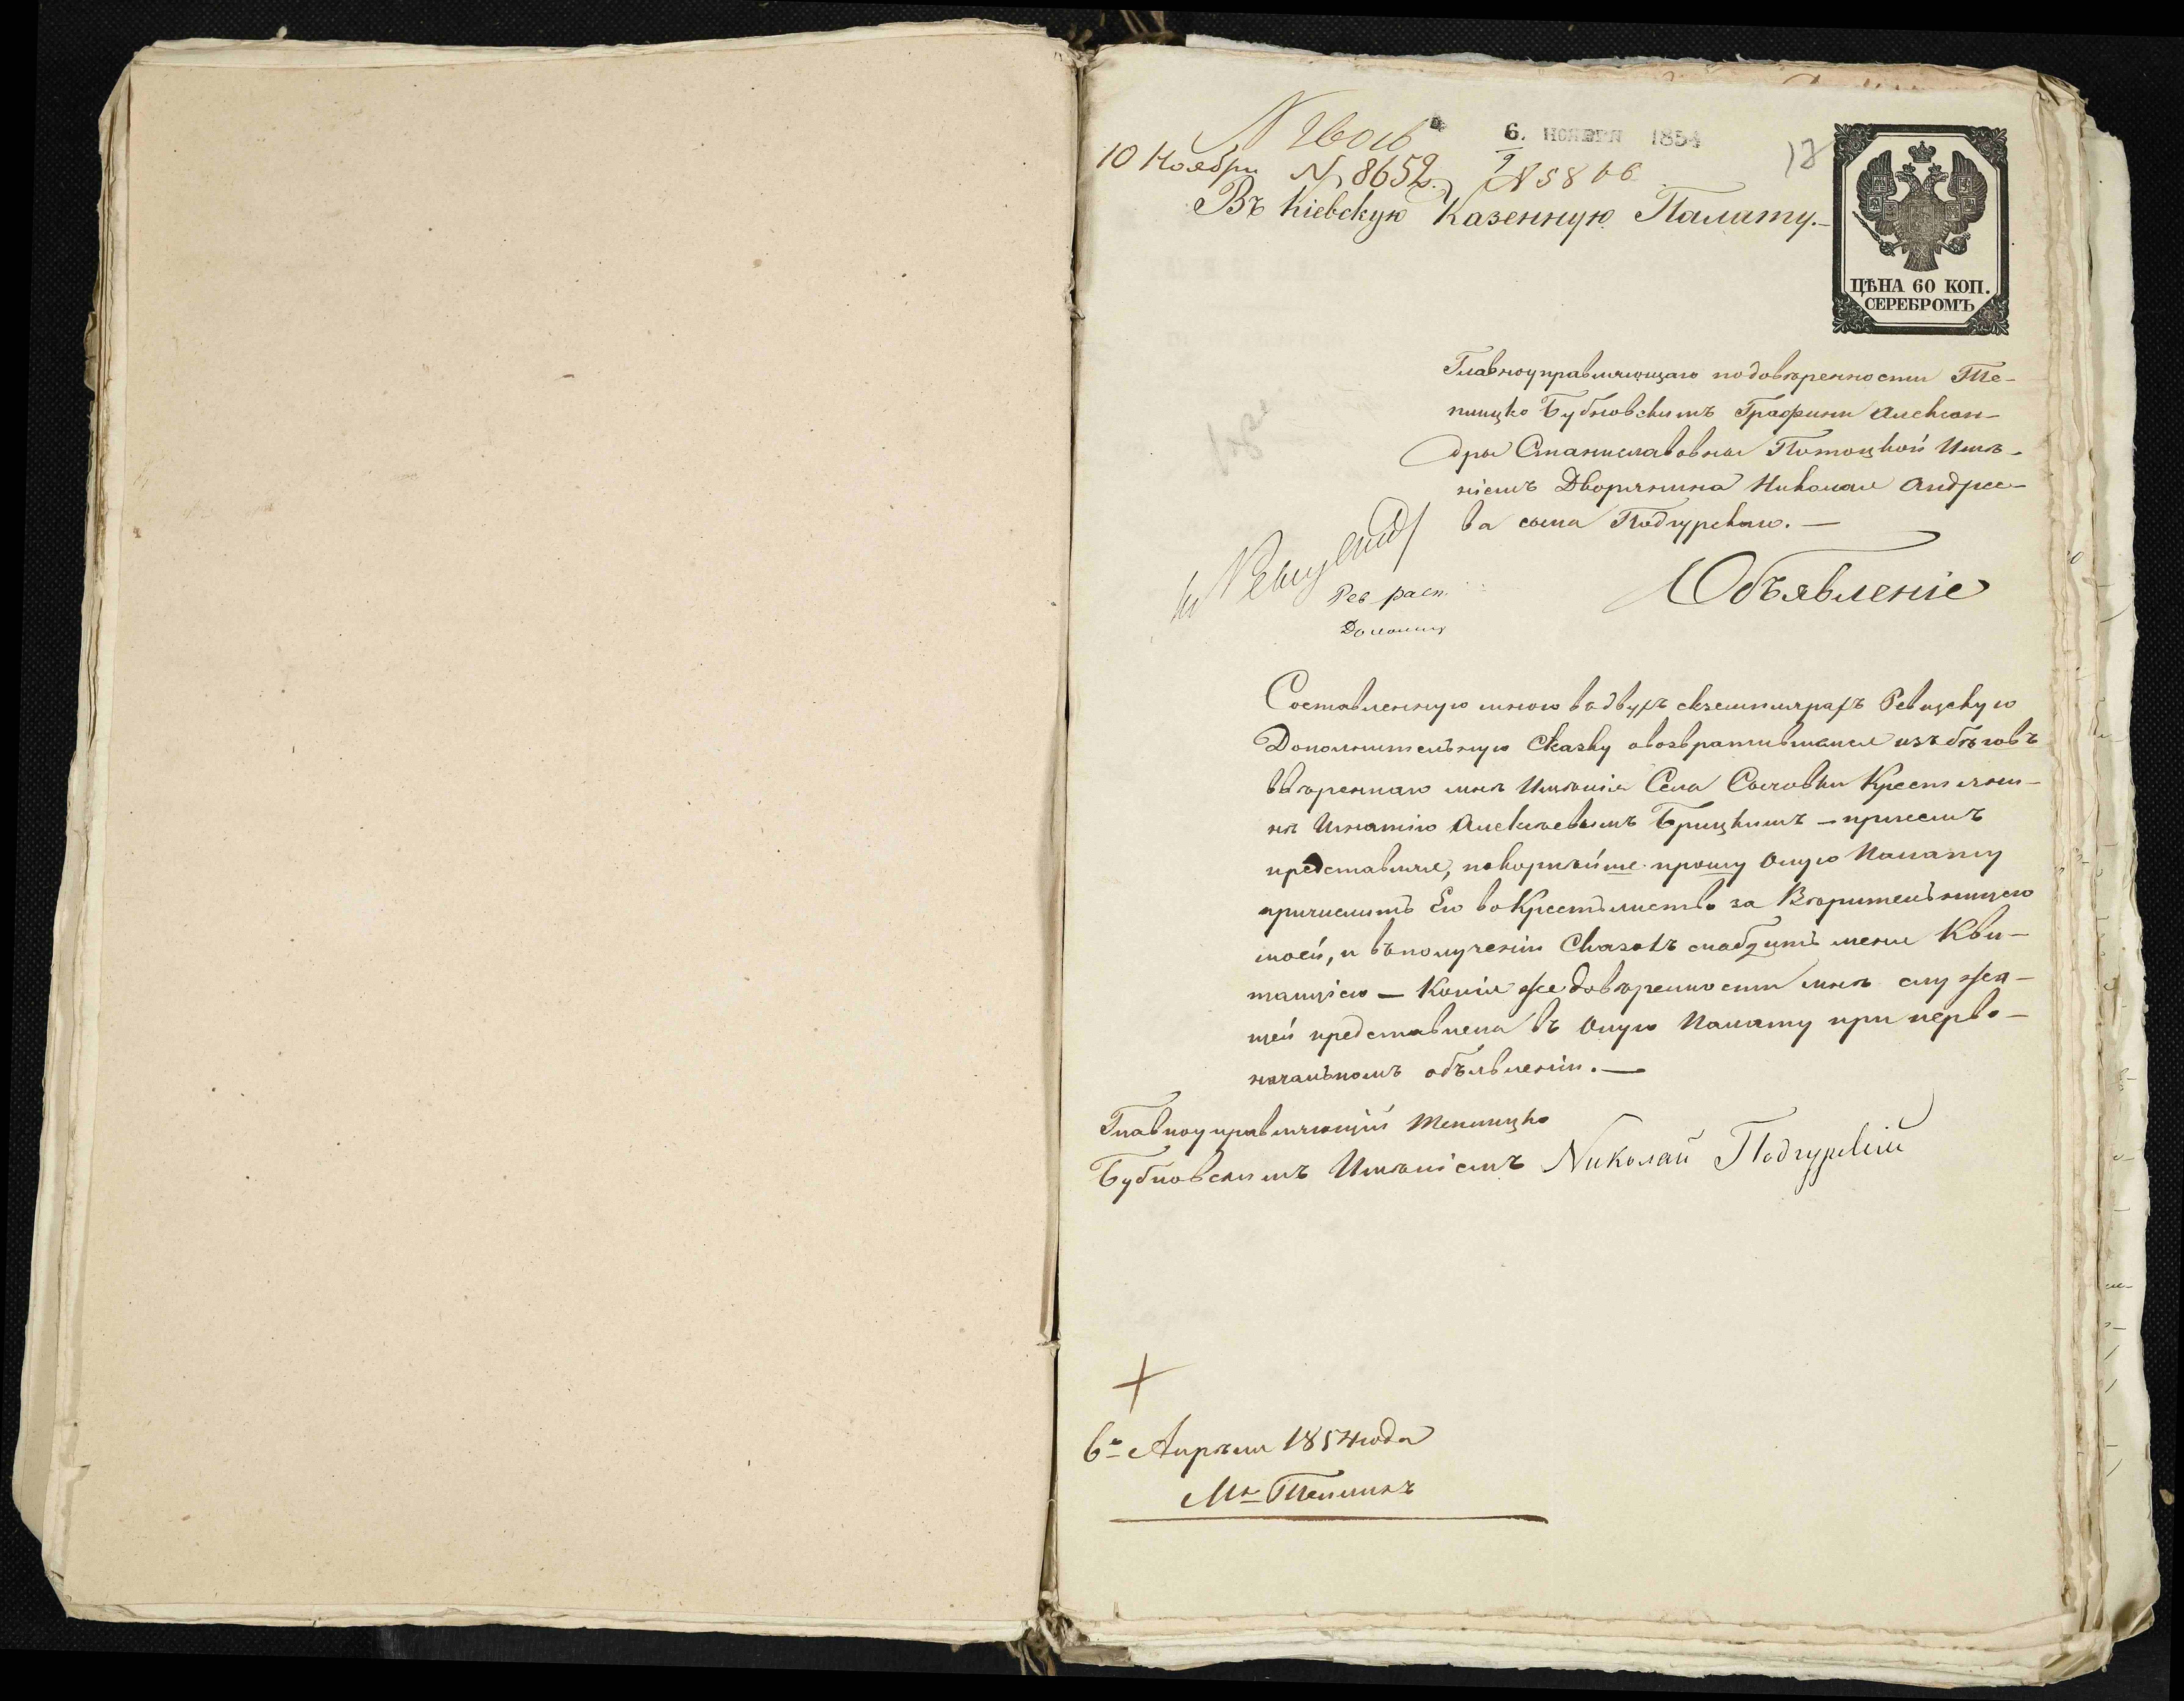 6. НОЯБРЯ 1854
10 Ноября № 8652.
Въ Кіевскую Казенную Палату.—
ЦѢНА 60 КОП.
СЕРЕБРОМЪ
Главноуправляющаго подовѣренности Те-
плицко Бубновскимъ Графини Алексан-
дры Станиславовны Потоцкой Имѣ-
ніемъ Дворянина Николая Андрее-
ва сына Подгурскаго.—
Рев расп.
Объявленіе
Составленную мною вадвухъ екземплярахъ Ревизскую
Дополнительную Сказку овозвратившемся изъ бѣговъ
ввѣреннаго мнѣ Имѣнія Села Сычовки Крестьяни-
нѣ Игнатію Алексѣевымъ Брицкимъ — присемъ
представляя, покорнѣйше прошу Оную Палату
причислить Его вокрестьянство за Вѣрительницею
моей, и въполученіи Сказокъ снабдить меня Кви-
танціею — Копія же довѣренности мнѣ служа-
щей представлена въ Оную Палату при перво-
начальномъ объявленіи.—
Главноуправляющій Теплицко
Бубновскимъ Имѣніемъ Николай Подгурскій
6го Апрѣля 1854 года
Мк Тепликъ